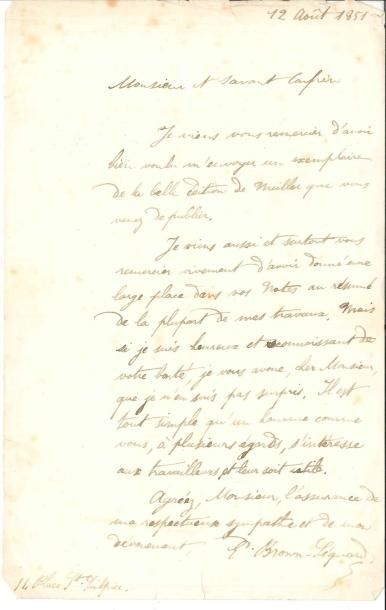 12 Août 1851
Monsieur et Savant Confrère
Je viens vous remercier d'avoir
bien voulu m'envoyer un exemplaire
de la belle édition de Muller que vous
venez de publier.
Je viens aussi et surtout vous
remercier vivement d'avoir donné une
large place dans vos Notes au résumé
de la plupart de mes travaux. Mais
si je suis heureux et reconnaissant de
votre bonté, je vous avoue, cher Monsieur,
que je n'en suis pas surpris. Il est
tout simple qu'un homme comme
vous, à plusieurs égards, s'intéresse
aux travailleurs et leur soit utile.
Agréez, Monsieur, l'assurance de
ma respectueuse sympathie et de mon
dévouement,
E. Brown-Séquard.
14 Place St Sulpice.